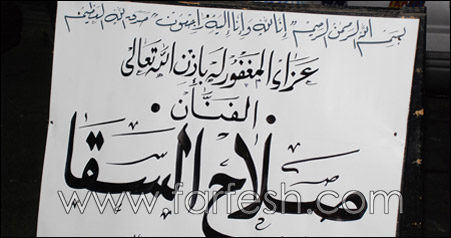 بسم الله الرحمن الرحيم "إنا لله وإنا إليه راجعون" صدق الله العظيم
عزاء المغفور له بإذن الله تعالى
الفنان
صلاح السقا
www.farfesh.com